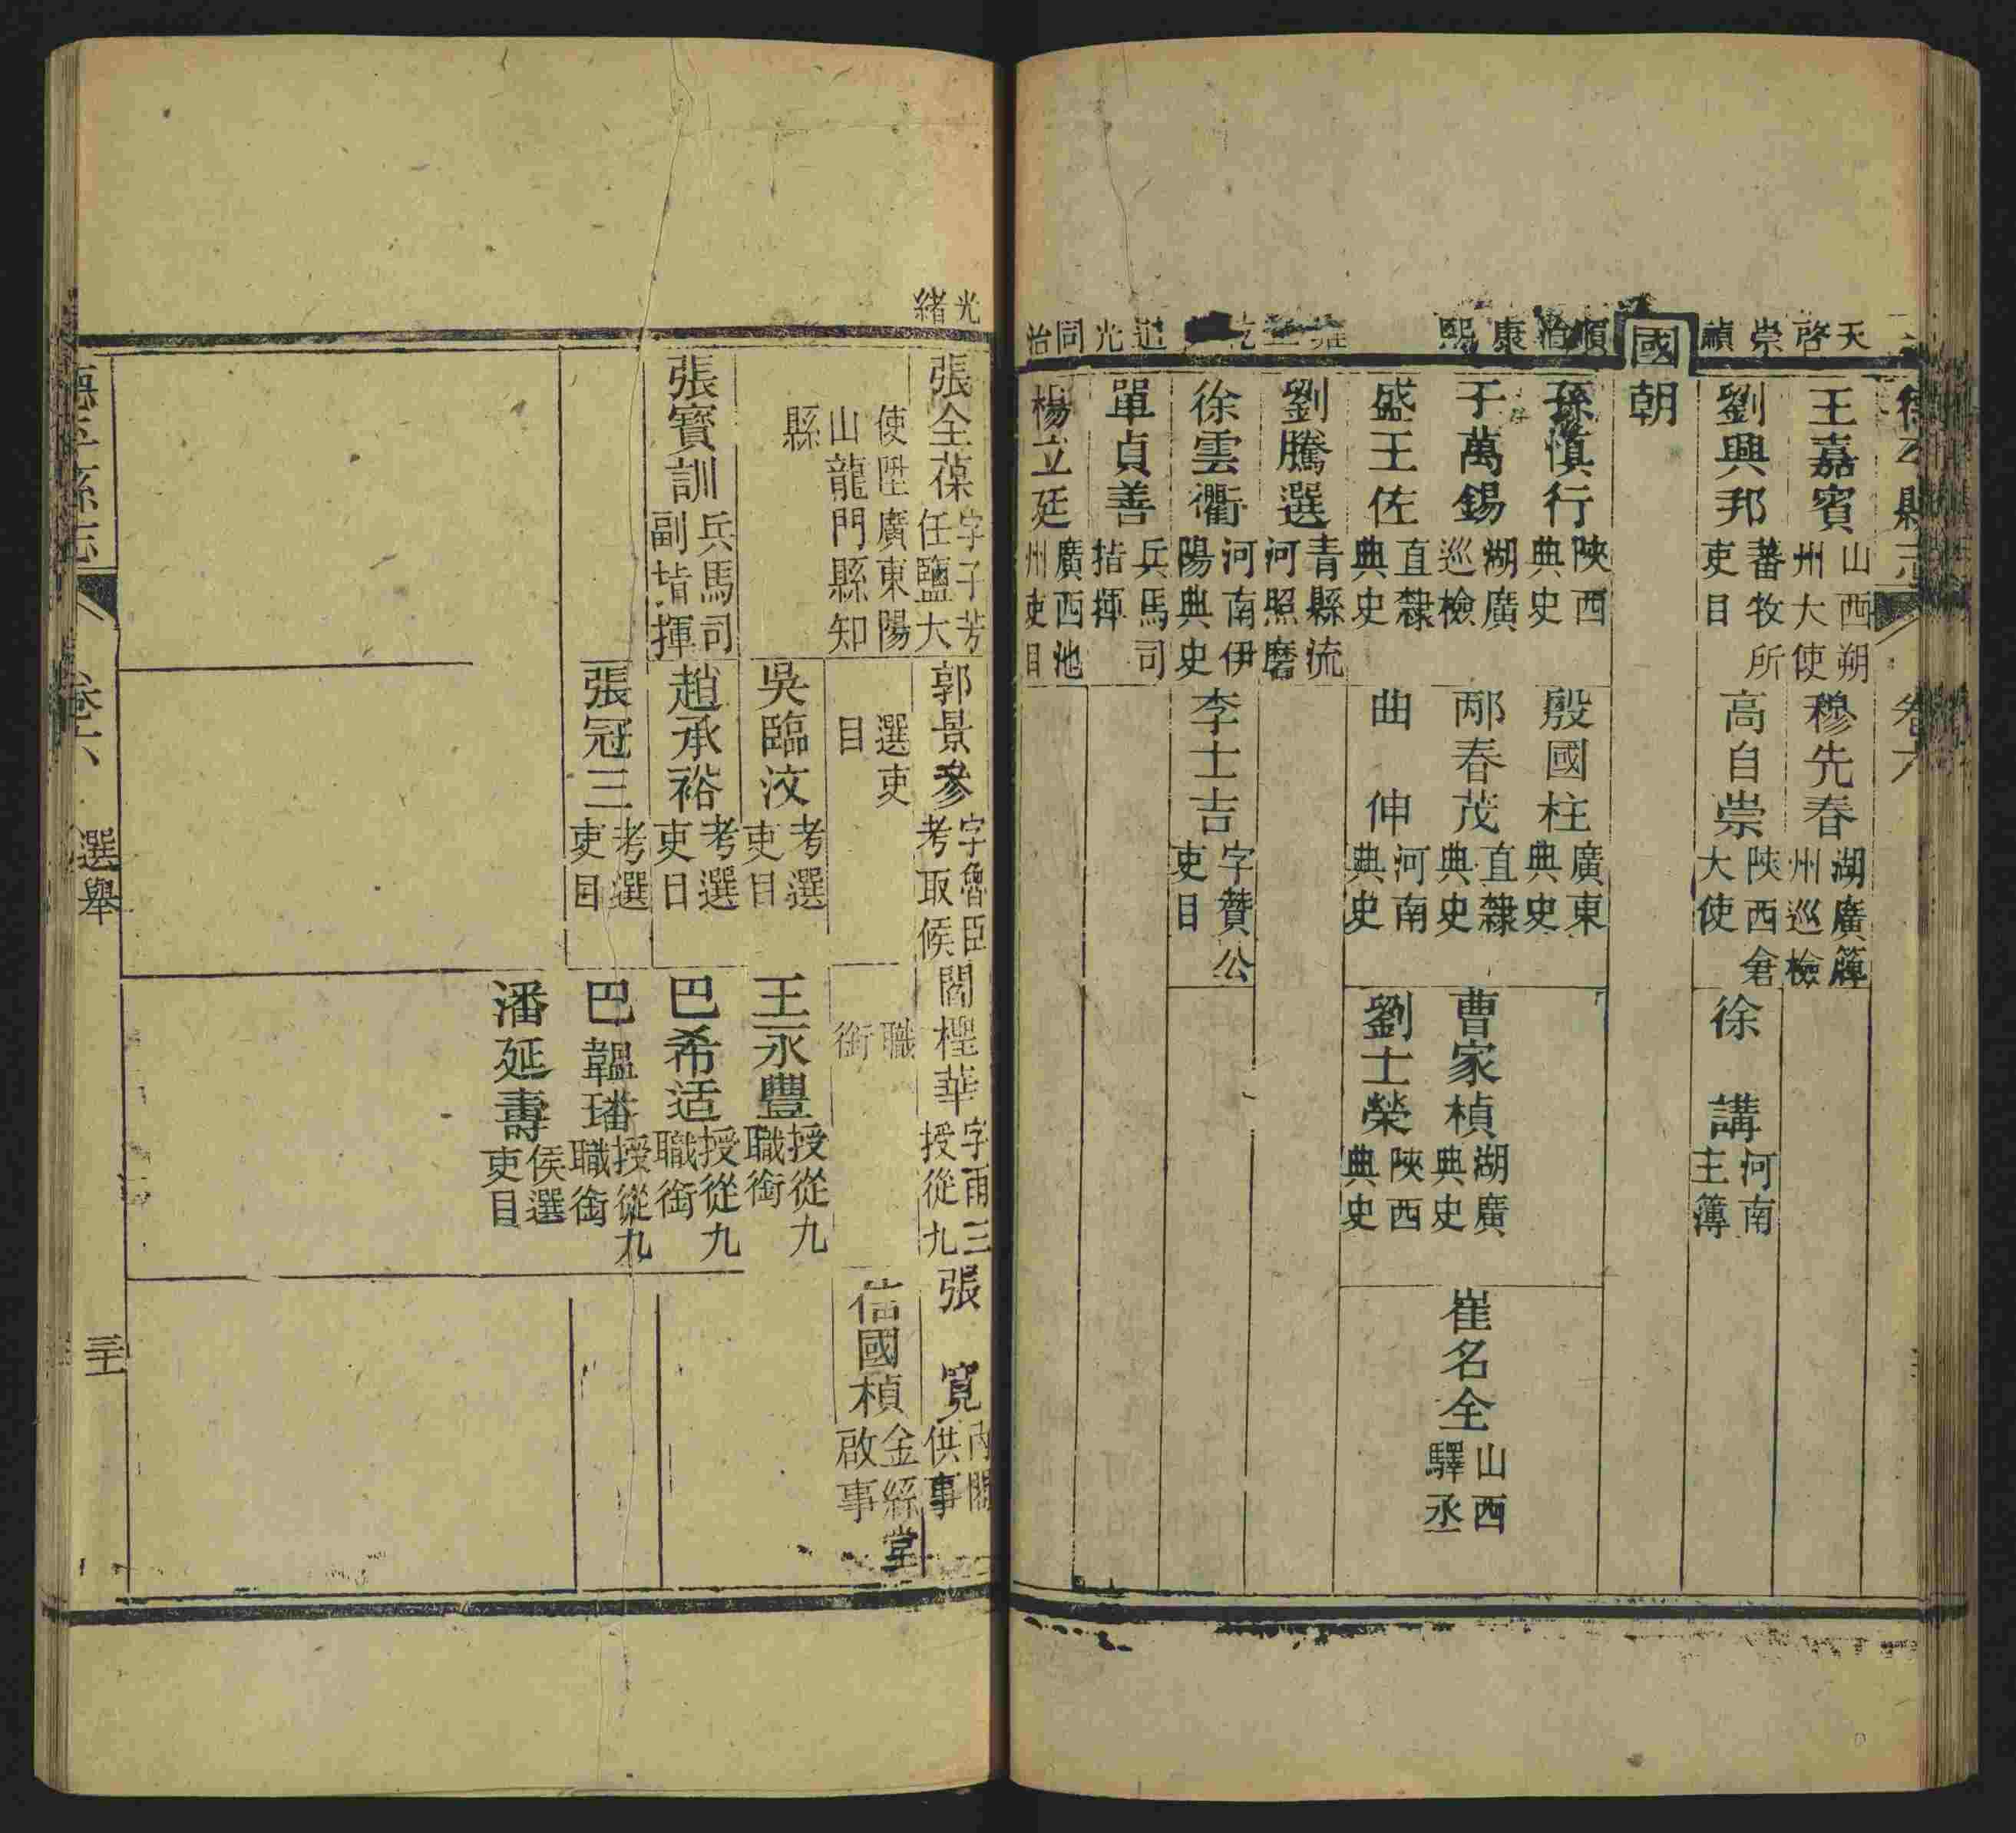 卷六
天啓
王嘉賓 山西朔州大使
穆先春 湖廣簰州巡檢
崇禎
劉興邦 蕃牧所吏目
高自崇 陝西倉大使
徐講 河南主簿
國朝
順治
孫慎行 陝西典史
殷國柱 廣東典史
康熙
于萬錫 湖廣巡檢
邴春茂 直隸典史
曹家楨 湖廣典史
崔名全 山西驛丞
盛王佐 直隸典史
曲伸 河南典史
劉士榮 陝西典史
劉騰選 青縣流河照磨
徐雲衢 河南伊陽典史
李士吉 字贊公吏目
道光
單貞善 兵馬司指揮
同治
楊立廷 廣西池州吏目
光緒
張全葆 字子芳任鹽大使陞廣東陽山龍門縣知縣
郭景參 字魯臣考取候選吏目
閻樫華 字甫三授從九職銜
張寬 內閣供事
信國楨 金絲堂啟事
吳臨汶 考選吏目
王永豐 授從九職銜
張寶訓 兵馬司副指揮
趙承裕 考選吏目
巴希适 授從九職銜
張冠三 考選吏目
巴韞璠 授從九職銜
潘延壽 候選吏目
德平縣志 卷六 選舉